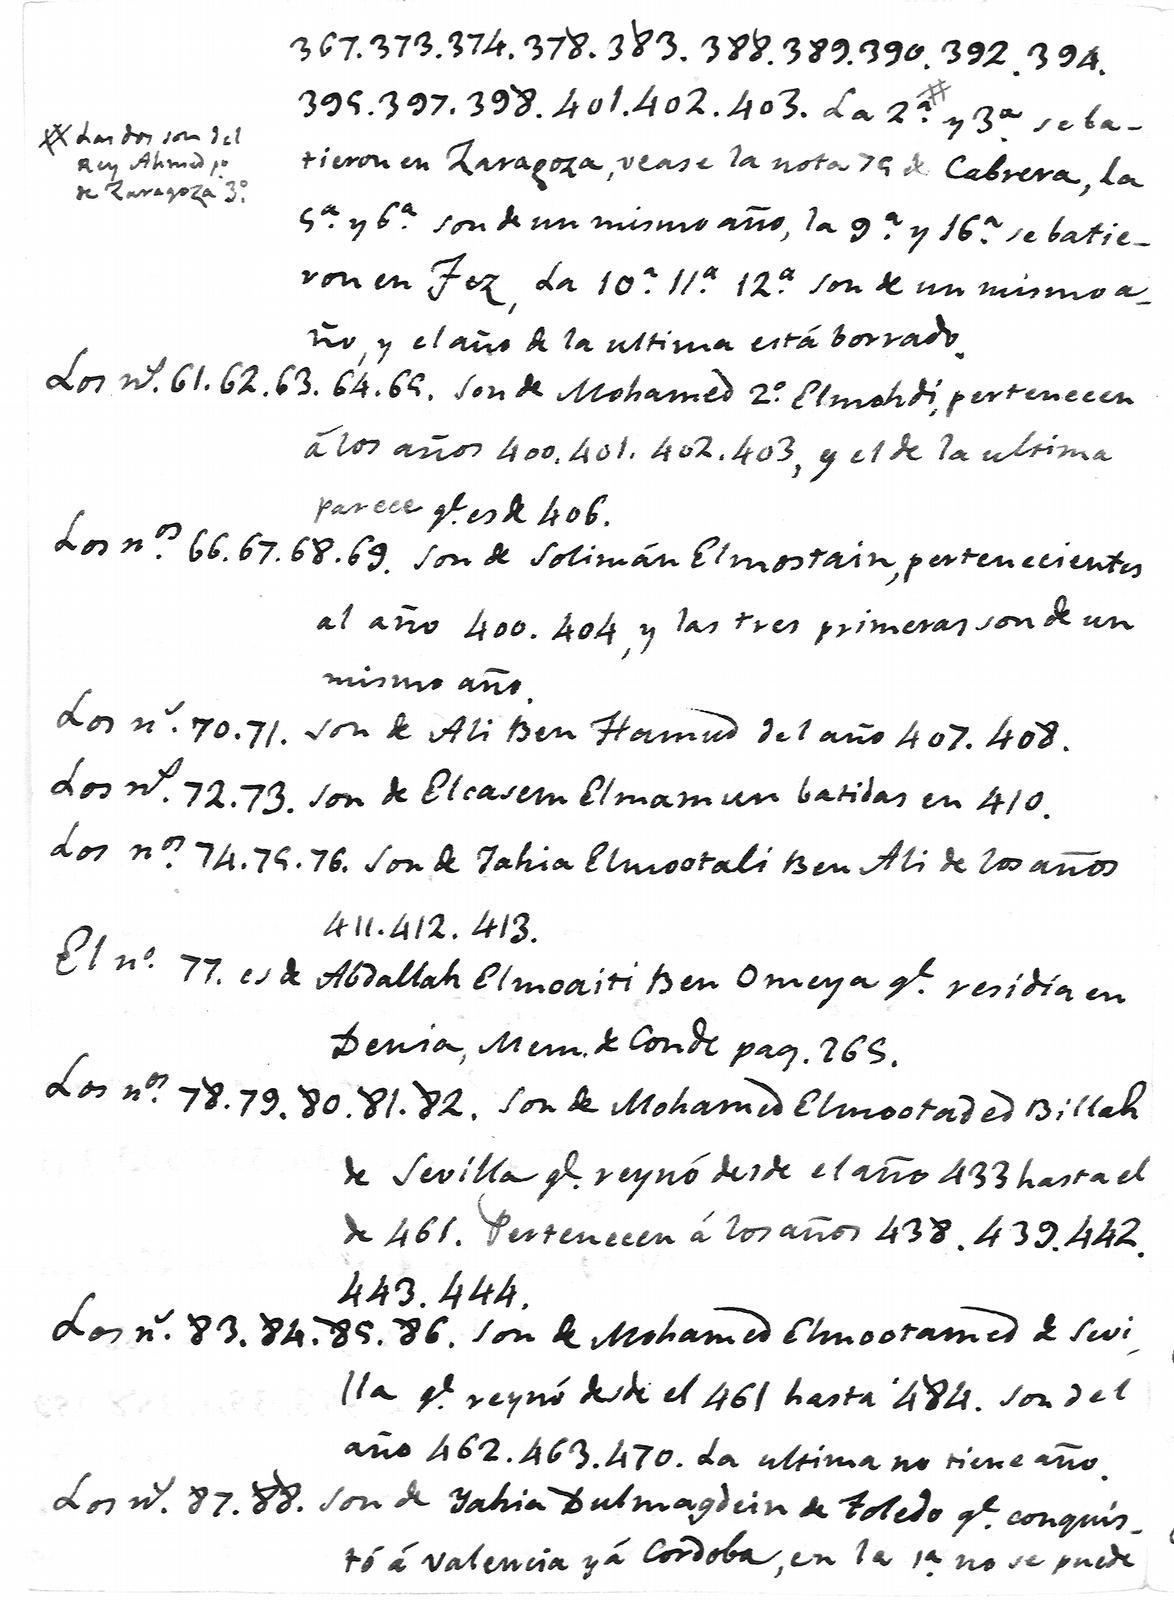 367.373.374.378.383.388.389.390.392.394.
395.397.398.401.402.403. La 2ª # y 3ª se ba-
# Las dos son del
Rey Ahmed pº
de Zaragoza 3º
tieron en Zaragoza, vease la nota 75 de Cabrera, La
5ª y 6ª son de un mismo año, la 9ª y 16ª se batie-
ron en Fez, La 10ª 11ª 12ª son de un mismo a-
ño, y el año de la ultima está borrado.
Los nˢ. 61.62.63.64.65. son de Mohamed 2º Elmohdi, pertenecen
á los años 400.401.402.403, y el de la ultima
parece q.ᵉ es de 406.
Los n.ᵒˢ 66.67.68.69. son de Solimán Elmostain, pertenecientes
al año 400.404, y las tres primeras son de un
mismo año.
Los nˢ. 70.71. son de Ali Ben Hamud del año 407.408.
Los nˢ. 72.73. son de Elcasem Elmamun batidas en 410.
Los n.ᵒˢ 74.75.76. son de Jahia Elmootali Ben Ali de los años
411.412.413.
El nº. 77. es de Abdallah Elmoaiti Ben Omeya q.ᵉ residía en
Denia, Mem. de Conde pag. 265.
Los n.ᵒˢ 78.79.80.81.82. son de Mohamed Elmootaded Billah
de Sevilla q.ᵉ reynó desde el año 433 hasta el
de 461. Pertenecen á los años 438.439.442.
443.444.
Los nˢ. 83.84.85.86. son de Mohamed Elmootamed de Sevi-
lla q.ᵉ reynó desde el 461 hasta 484. son del
año 462.463.470. La ultima no tiene año.
Los nˢ. 87.88. son de Yahia Dulmagdein de Toledo q.ᵉ conquis-
tó á Valencia y á Cordoba, en la 1ª no se puede